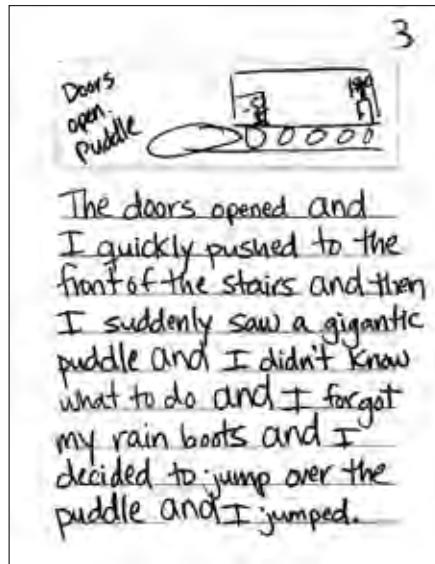 3
Doors
open.
Puddle
The doors opened and
I quickly pushed to the
front of the stairs and then
I suddenly saw a gigantic
puddle and I didn't know
what to do and I forgot
my rain boots and I
decided to jump over the
puddle and I jumped.